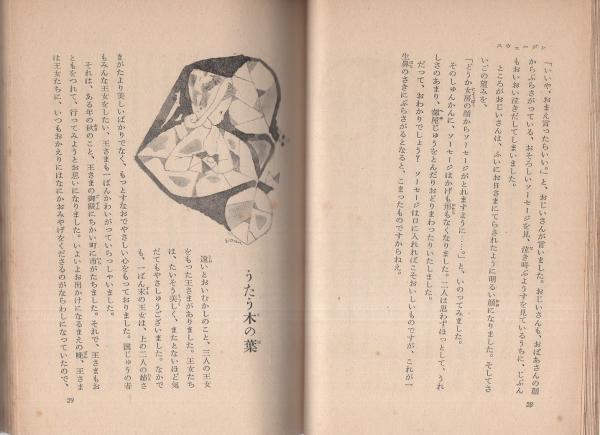 スウェーデン
「いいや、おまえ言ったらいい。」と、おじいさんが言いました。おじいさんも、おばあさんの顔
からぶらさがっている、おそろしいソーセージを見、泣き叫ぶようすを見ているうちに、じぶん
もおいおい泣きだしてしまいました。
ところがおじいさんは、ふいにお日さまにてらされたように明るい顔になりました。そしてさ
いごの望みを、
「どうか女房の顔からソーセージがとれますように……。」と、いのってみました。
そのしゅんかんに、ソーセージはかげも形もなくなりました。二人は思わずほっとして、うれ
しさのあまり、部屋じゅうをとんだりおどりまわったりいたしました。
だって、おわかりでしょう？ ソーセージは口に入れればこそおいしいものですが、これが一
生鼻のさきにぶらさがるとなると、こまったものですからねえ。
28
うたう木の葉
遠いとおいむかしのこと、三人の王女
をもった王さまがありました。王女たち
は、たいそう美しく、またとないほど気
だてもやさしゅうございました。なかで
も、一ばん末の王女は、上の二人の姉さ
まがたより美しいばかりでなく、もっとすなおでやさしい心をもっておりました。国じゅうの者
もみんな王女をしたい、王さまも一ばんかわいがっていらっしゃいました。
それは、ある年の秋のこと、王さまの御殿にちかい町に市がたちました。それで、王さまもお
ともをつれて、行ってみようとお思いになりました。いよいよお出かけになるまえの晩、王さま
は王女たちに、いつもおかえりにはなにかおみやげをくださるのがならわしになっていたので、
29